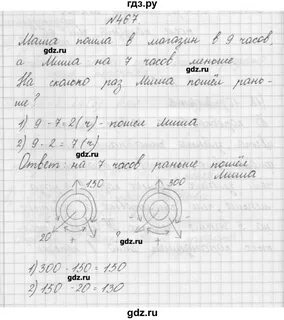 гдз.ру
№467
Маша пошла в магазин в 9 часов,
а Миша на 7 часов меньше.
На сколько раз Миша пошёл рань-
ше?
1) 9 - 7 = 2 (ч) - пошел Миша
2) 9 - 2 = 7 (ч)
Ответ: на 7 часов раньше пошёл
Миша
130 300
20 + ? - +
1) 300 - 150 = 150
2) 150 - 20 = 130
gdz.ru